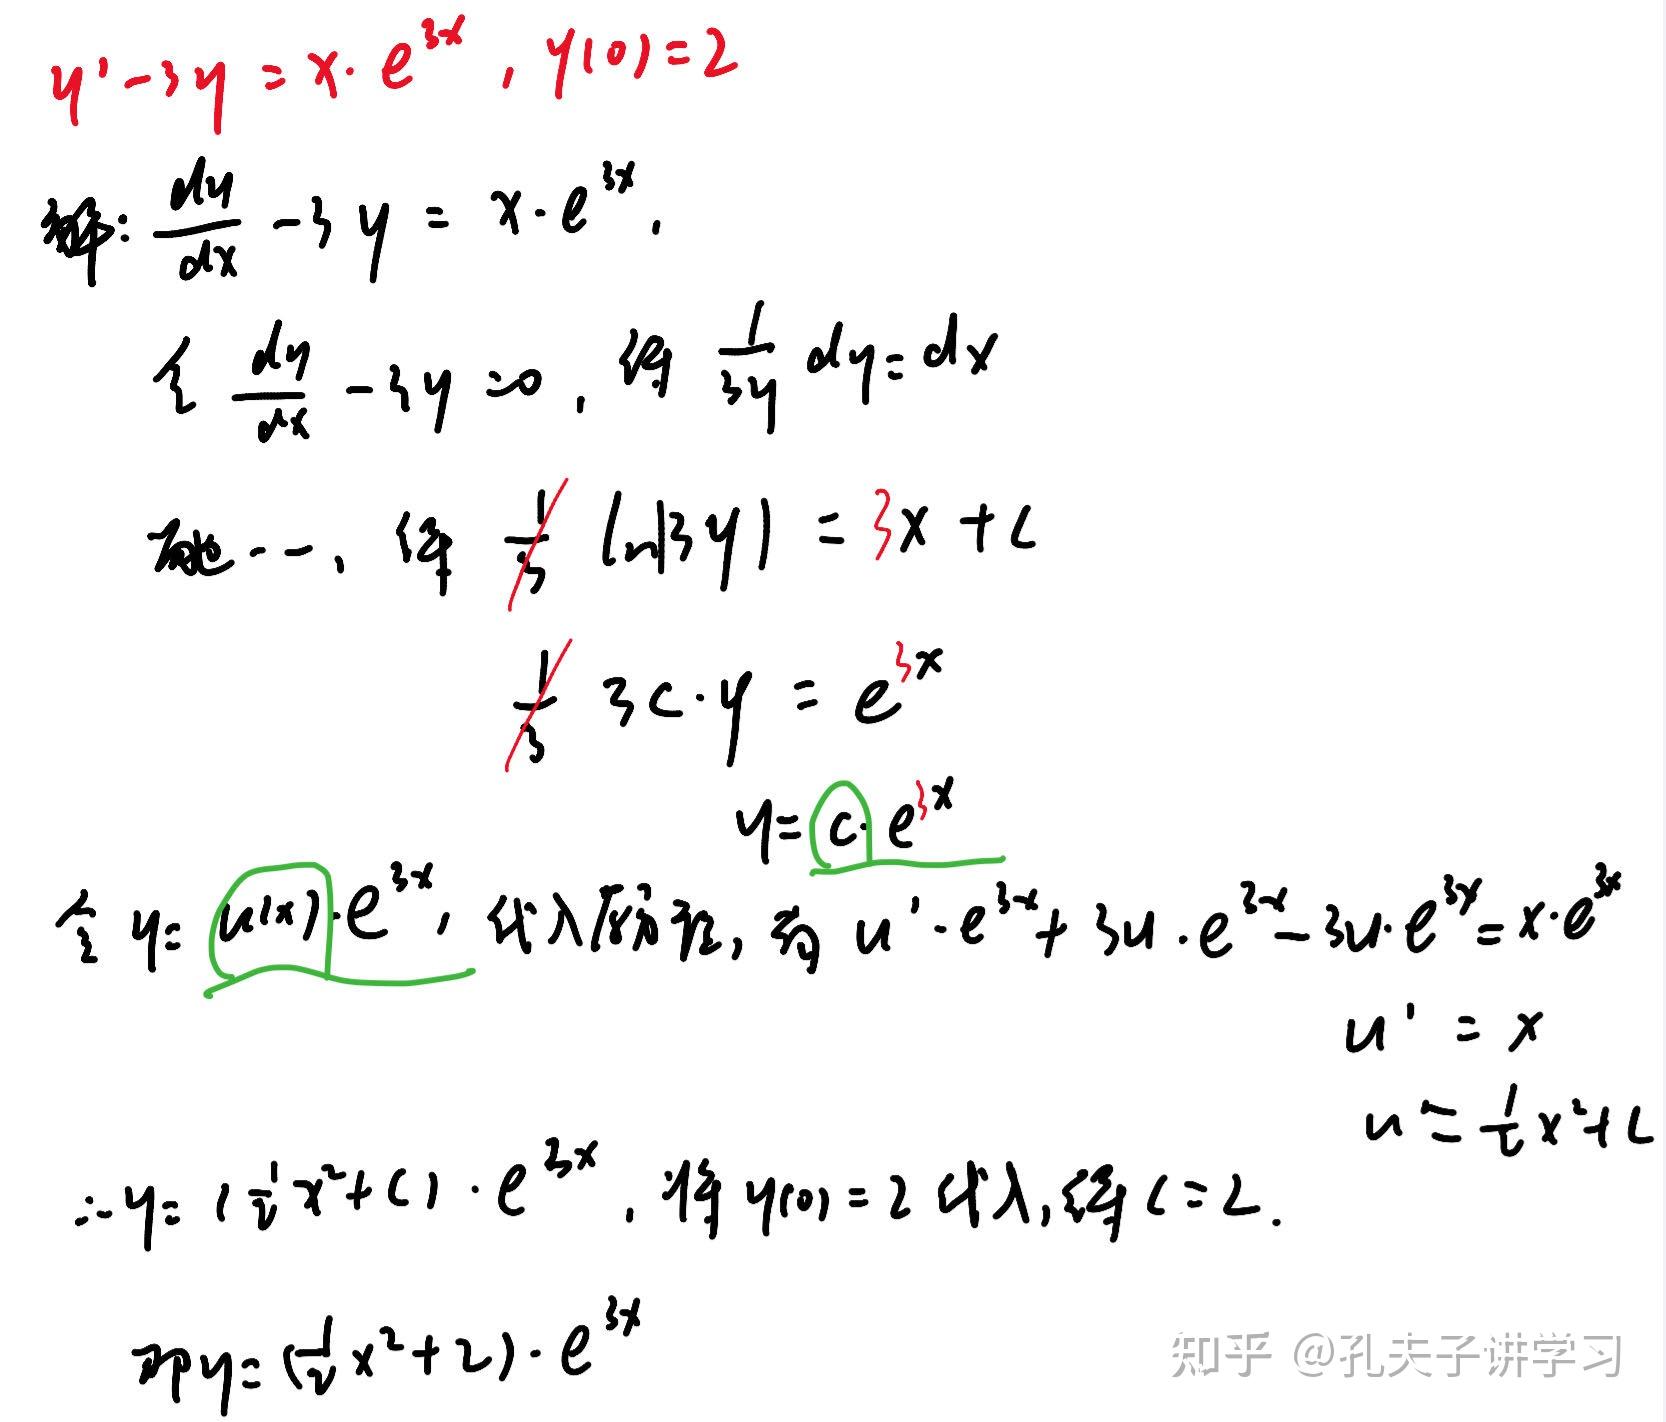 y'-3y=x·e^{3x}, y(0)=2
解: dy/dx -3y = x·e^{3x}.
令 dy/dx -3y=0, 得 1/3y dy=dx
…, 得 1/3 ln|3y| = 3x+C
1/3 3c·y = e^{3x}
y=c·e^{3x}
令 y=u(x)·e^{3x}, 代入原方程, 为 u'·e^{3x}+3u·e^{3x}-3u·e^{3x}=x·e^{3x}
u'=x
u=1/2x²+C
∴y=(1/2x²+C)·e^{3x}, 将y(0)=2代入,得C=2.
即y=(1/2x²+2)·e^{3x}
知乎 @孔夫子讲学习